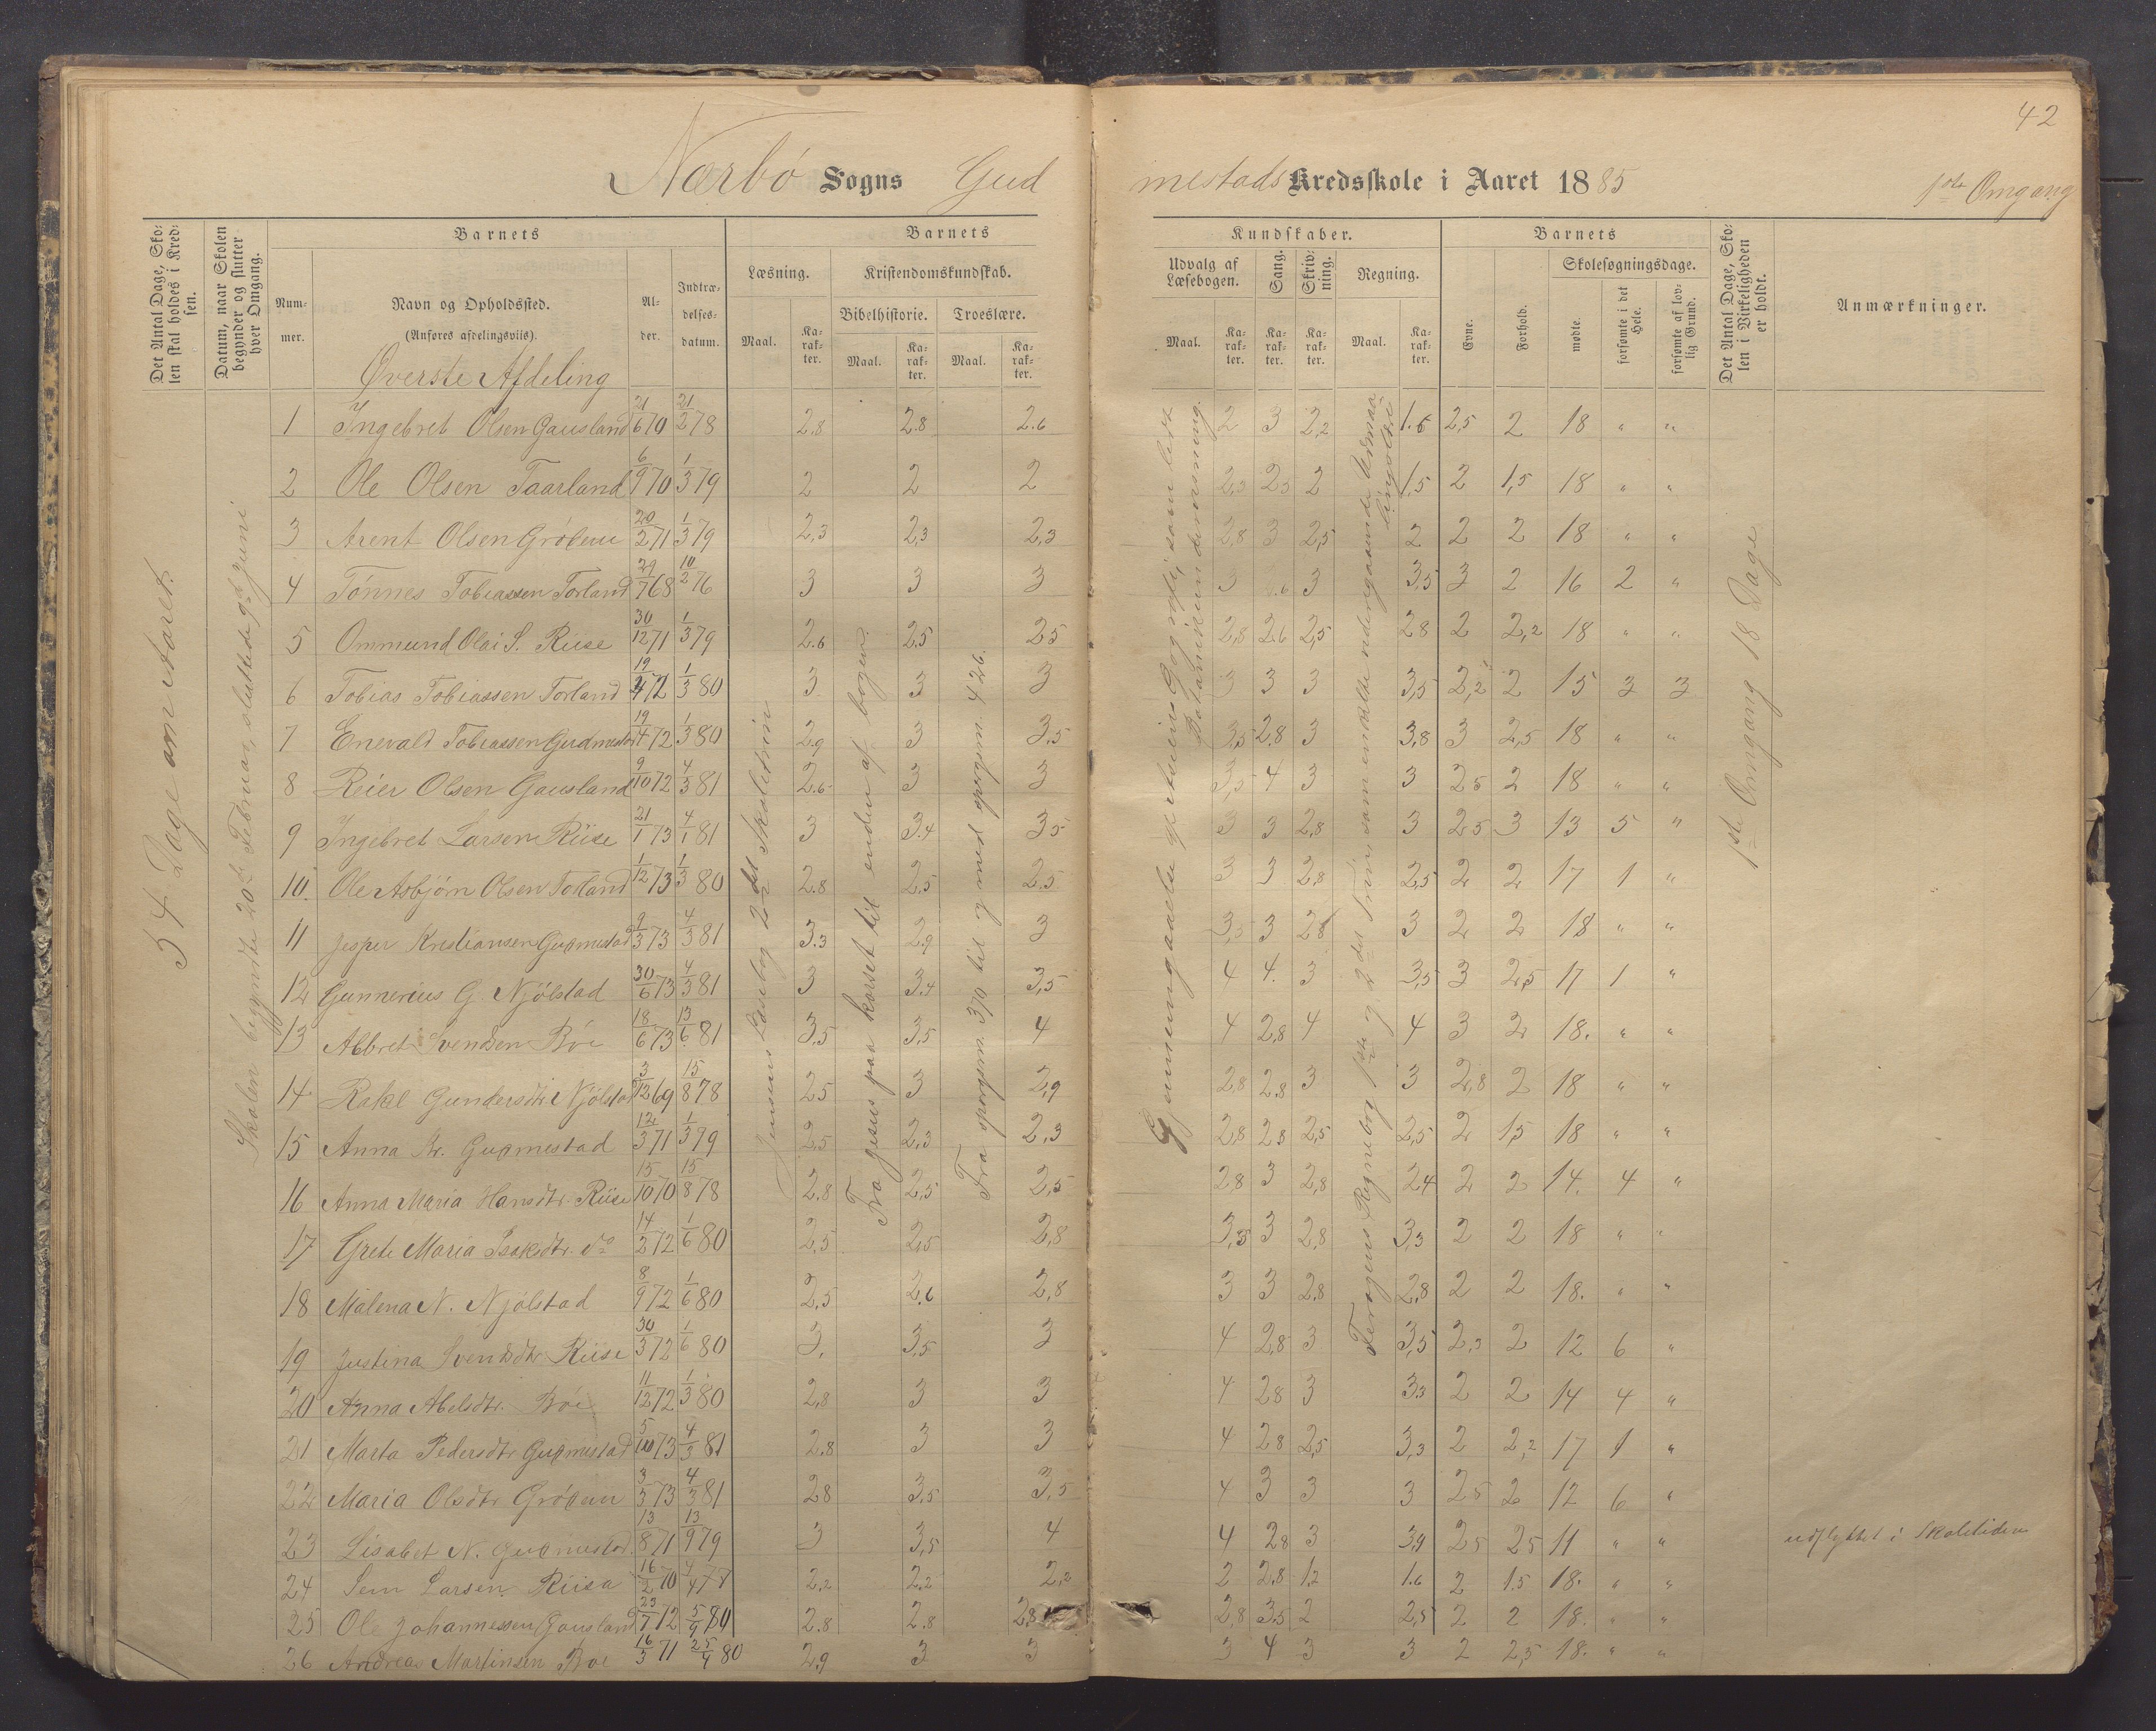 42
Nærbø Sogns Gudmestads Kredsskole i Aaret 1885 1ste Omgang
Det Antal Dage, Skolen skal holdes i Kredsen.
Datum, naar Skolen begynder og slutter hver Omgang.
Barnets
Nummer.
Navn og Opholdssted.
(Anføres afdelingsviis).
Alder.
Indtrædelsesdatum.
Barnets Kundskaber.
Læsning.
Maal. Karakter.
Kristendomskundskab.
Bibelhistorie. Troeslære.
Maal. Karakter. Maal. Karakter.
Udvalg af Læsebogen.
Maal. Karakter.
Sang. Karakter.
Skrivning. Karakter.
Regning.
Maal. Karakter.
Barnets
Evne. Forhold.
Skolesøgningsdage.
mødte. forsømte i det Hele. forsømte af lovlig Grund.
Det Antal Dage, Skolen i Virkeligheden er holdt.
Anmærkninger.
Øverste Afdeling
54 Dage om etaret.
Skolen begyndte 20de Februar, sluttede 9de Juni
Jensens Læsebog 2det Skoletrin
Fra Jesus paa korset til enden af bogen.
Fra spørgsm. 370 til og med spørgsm. 426.
Regnebog 1ste og 2det Trin
1ste Omgang 18 Dage
1 Ingebret Olsen Gausland 21/6 70 21/2 78 2.8 2.8 2.6 2 3 2,2 1.6 2,5 2 18 " "
2 Ole Olsen Taarland 6/9 70 1/3 79 2 2 2 2,3 2,3 2 1,5 2 1,5 18 " "
3 Arent Olsen Grødem 20/2 71 1/3 79 2,3 2,3 2,3 2,8 3 2,5 2 2 2 18 " "
4 Tønnes Tobiassen Torland 29/7 68 10/2 76 3 3 3 3 3 3,5 3 2 16 2 "
5 Ommund Olai S. Riise 30/12 71 1/3 79 2.6 2,5 2,5 2,8 2,6 2,5 2,8 2 2,2 18 " "
6 Tobias Tobiassen Torland 19/4 72 1/3 80 3 3 3 3 3 3 3,5 2,2 2 15 3 3
7 Enevald Tobiassen Gudmestad 19/4 72 1/3 80 2,9 3 3,5 3,5 2,8 3 3,8 3 2,5 18 " "
8 Reier Olsen Gausland 9/10 72 4/3 81 2.6 3 3 3,5 4 3 3 2,5 2 18 " "
9 Ingebret Larsen Riise 21/1 73 4/1 81 3 3.4 3,5 3 3 2,8 3 2,5 3 13 5 "
10. Ole Asbjørn Olsen Torland 1/12 73 1/3 80 2.8 2,5 2.5 3 3 2,8 2,5 2 2 17 1 "
11 Jesper Kristiansen Gudmestad 9/3 73 4/3 81 3.3 2.9 3 3,3 3 2,8 3 2 2 18 " "
12 Gunnerius G. Njølstad 30/6 73 4/3 81 3 3.4 3,5 4 4. 3 3,5 3 2,5 17 1 "
13 Abbret Svendsen Bøe 18/6 73 13/6 81 3,5 3,5 4 4 2,8 4 4 3 2 18. " "
14 Rakel Gundersdtr Njølstad 3/12 69 15/8 78 2,5 3 2,9 2,8 2.8 3 3 2,8 2 18 " "
15 Anna Kr. Gudmestad 12/3 71 1/3 79 2,5 2,3 2,3 2,8 2,8 2,5 2,5 2 1,5 18 " "
16 Anna Maria Hansdtr. Riise 15/10 70 15/8 78 2.8 2,5 2,5 2,8 3 2,8 2,4 2 2 14. 4 "
17 Grete Maria Isaksdtr. do 14/2 72 1/6 80 2,5 2,5 2,8 3,3 3 2,8 3,3 2 2 18 " "
18 Malena N. Njølstad 8/9 72 1/6 80 2,5 2.6 2,8 3 3 2.8 2,8 2 2 18. " "
19 Justina Svendsdtr Riise 30/3 72 1/6 80 3, 3,5 3 4 2,8 3 3,5 2,3 2 12 6 "
20 Anna Abelsdtr. Bøe 11/12 72 1/3 80 2,8 3 3 4 2,8 3 3,3 2 2 14 4 "
21 Marta Pedersdtr Gudmestad 5/10 73 4/3 81 2.8 3 3 4 2,8 2,5 3,3 2 2,2 17 1 "
22 Maria Olsdtr Grødem 3/3 73 4/3 81 2,8 3,5 3,5 4 3 3 3 2,5 2 12 6 "
23 Lisabet N. Gudmestad. 13/8 71 13/9 79 3 3,5 4 4 2,8 3 3,9 2,5 2,5 11 " " udflyttet i Skoletiden
24 Sem Larsen Riisa 16/2 70 4/4 77 2,2 2.2 2,2 2 2.8 1.2 1.6 2 1.5 18. " "
25 Ole Johannessen Gausland 23/7 72 5/4 80 2.8 2.8 2.8 2,8 3.5 2 2,5 2 2 18. " "
26 Andreas Martinsen Bøe 16/3 71 25/4 80 2.9 3 3 3 4 3 3 2 2,5 18. " "